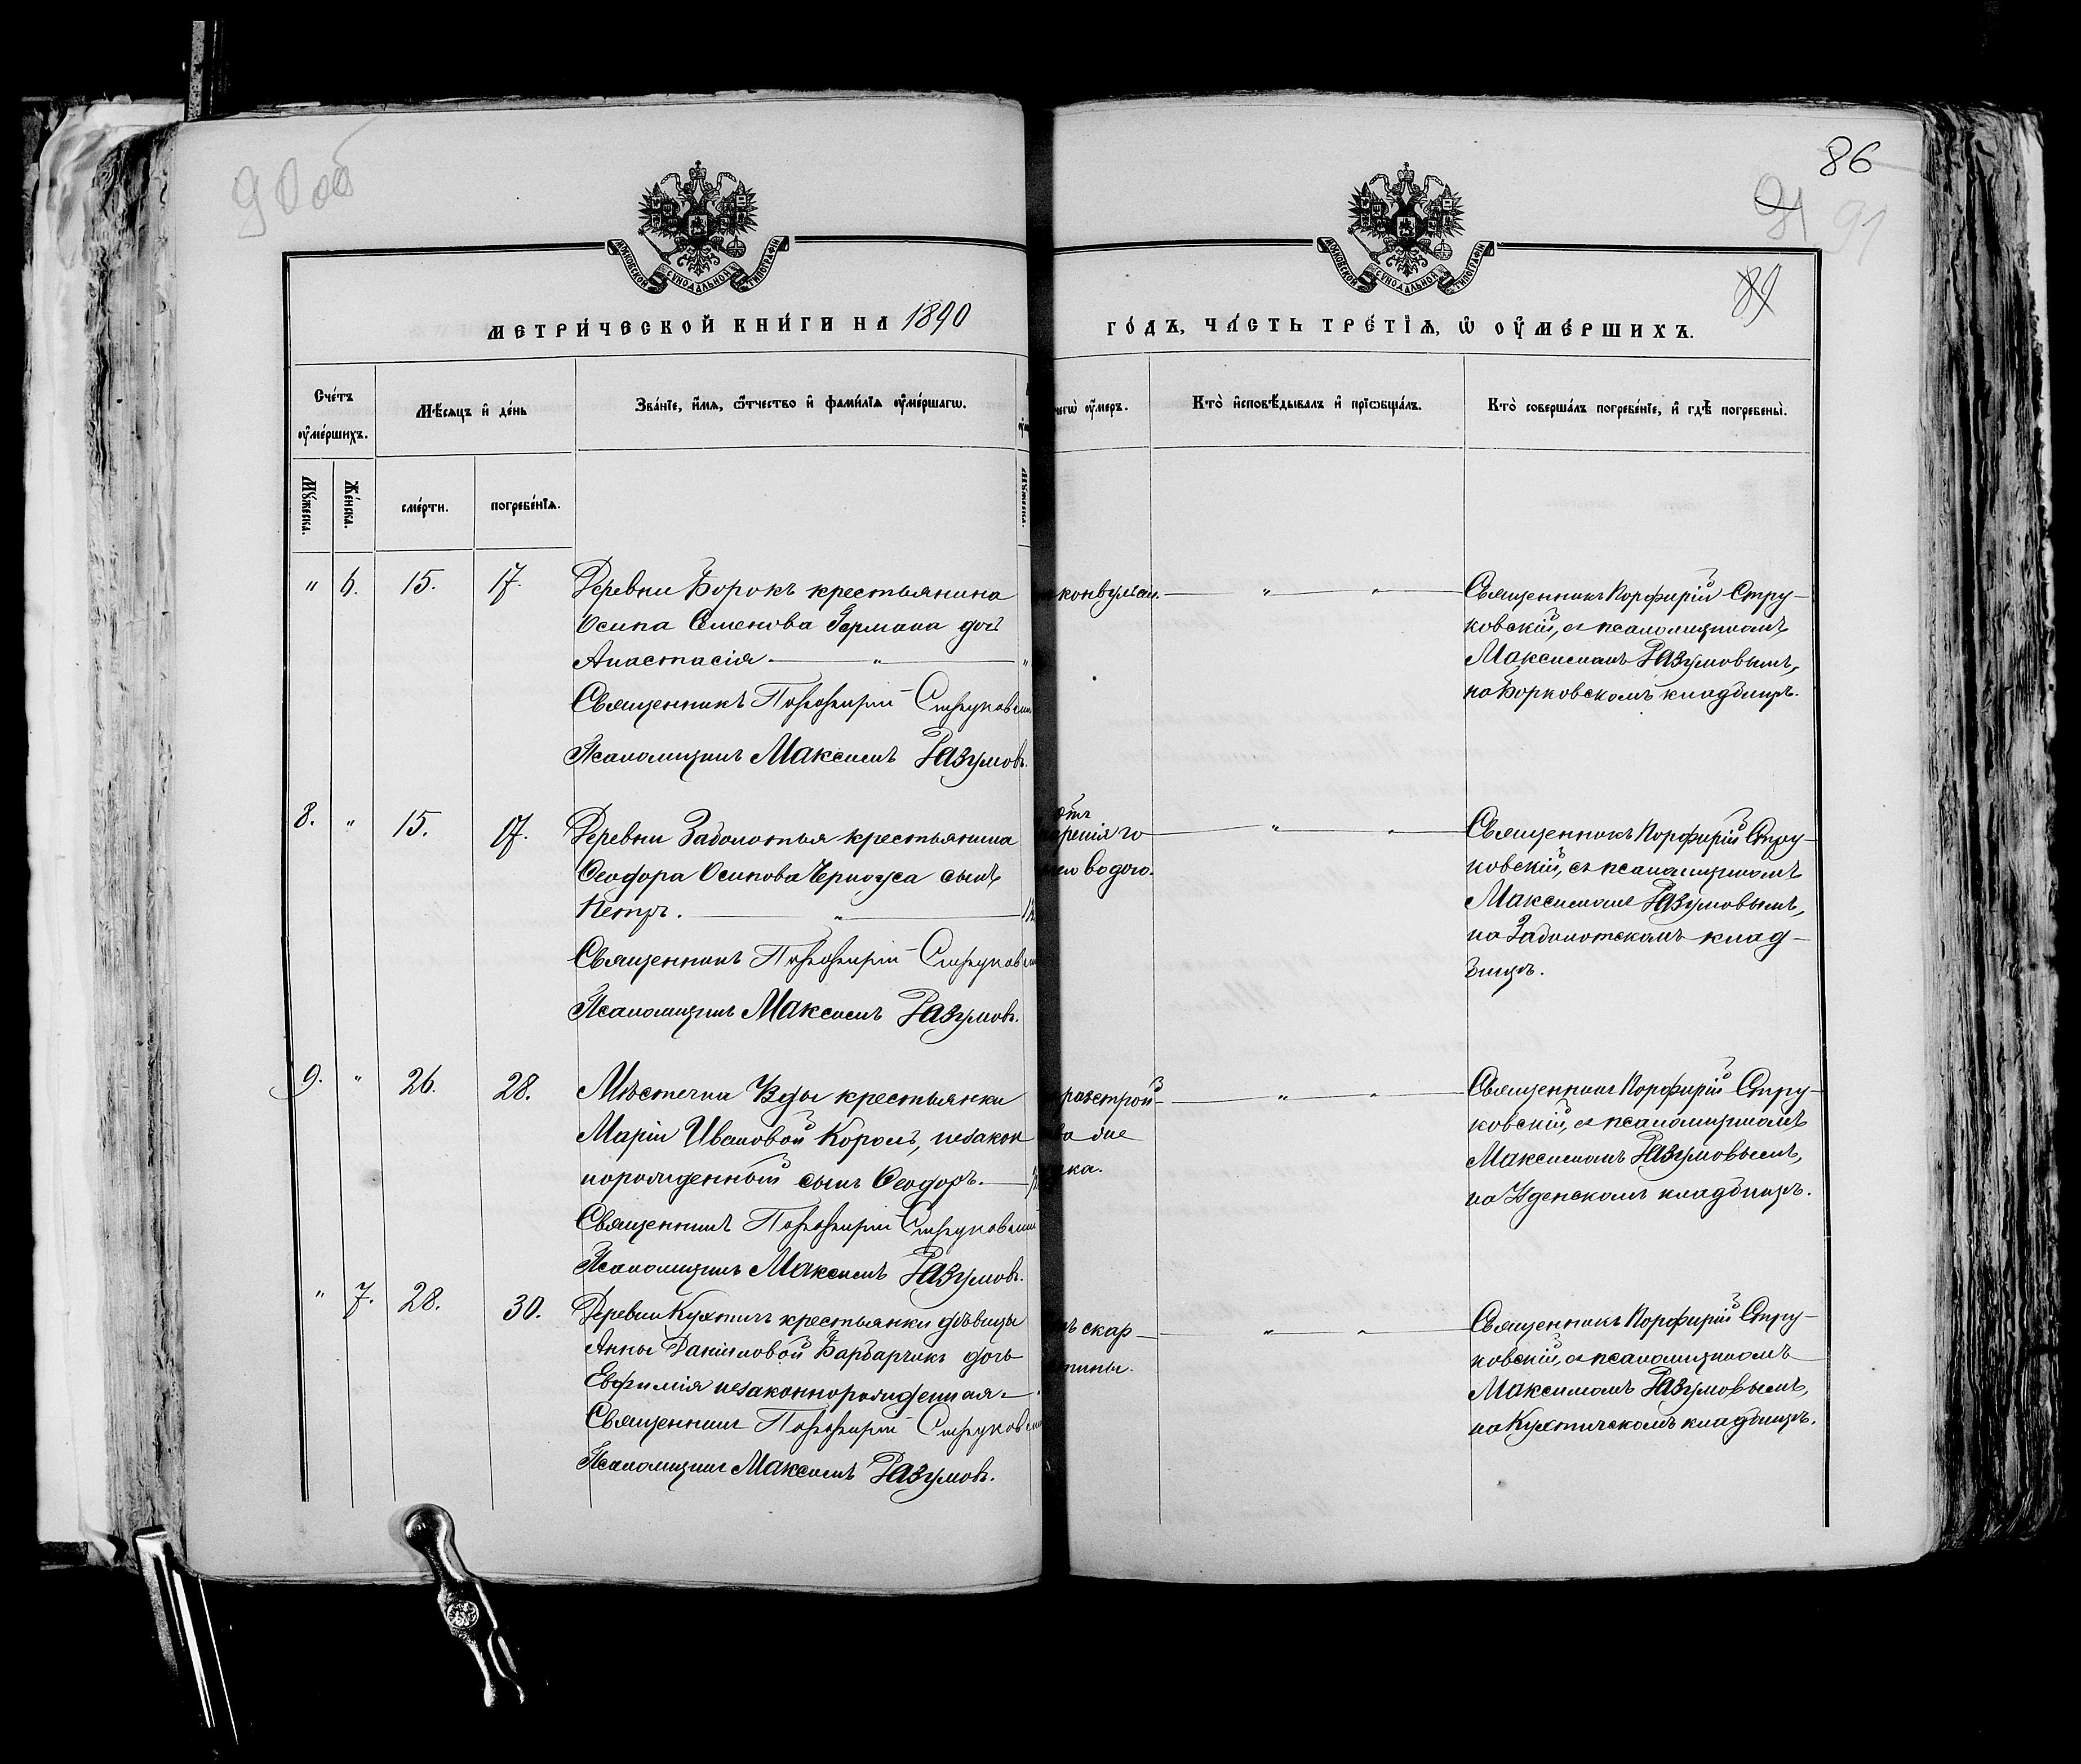 90об
86
91 91
89
МОСКОВСКОЙ СѴНОДАЛЬНОЙ ТИПОГРАФІИ
МОСКОВСКОЙ СѴНОДАЛЬНОЙ ТИПОГРАФІИ
МЕТРИ́ЧЕСКОЙ КНИ́ГИ НА 1890
ГО́ДЪ, ЧА́СТЬ ТРЕ́ТЇѦ, Ѡ҆ ОУ҆МЕ́РШИХЪ.
Сче́тъ оу҆ме́ршихъ.
Мѣ́сяцъ и҆ де́нь
Зва́нїе, и҆́мѧ, ѻ҆́тчество и҆ фами́лїѧ оу҆ме́ршагѡ.
чегѡ̀ оу҆́меръ.
Кто̀ и҆сповѣ́дывалъ и҆ прїѡбща́лъ.
Кто̀ соверша́лъ погребе́нїе, и҆ гдѣ̀ погребены̀.
Му́жеска.
Же́нска.
сме́рти.
погребе́нїѧ.
Му́жеска.
" 6. 15. 17.
Деревни Борокъ крестьянина
Осипа Семенова Германа дочь
Анастасія — " —
Священникъ Порфирій Струковскі
Псаломщикъ Максимъ Разумовъ.
конвульсіи. — " — " —
Священникъ Порфирій Стру-
ковскій, съ псаломщикомъ
Максимомъ Разумовымъ,
на Борковскомъ кладбищѣ.
8. " 15. 17.
Деревни Заболотья крестьянина
Ѳеодора Осипова Черноуса сынъ
Петръ. — " —
Священникъ Порфирій Струковскі
Псаломщикъ Максимъ Разумовъ.
отъ
ренія го
чею водою.
— " — " —
Священникъ Порфирій Стру-
ковскій, съ псаломщикомъ
Максимомъ Разумовымъ,
на Заболотскомъ клад-
бищѣ.
9. " 26. 28.
Мѣстечка Узды крестьянки
Маріи Ивановой Король, незакон
норожденный сынъ Ѳеодоръ. —
Священникъ Порфирій Струковскій
Псаломщикъ Максимъ Разумовъ.
разстрой-
ва же
удка.
— " — " —
Священникъ Порфирій Стру-
ковскій, съ псаломщикомъ
Максимомъ Разумовымъ,
на Узденскомъ кладбищѣ.
" 7. 28. 30.
Деревни Кухтичъ крестьянки дѣвицы
Анны Даніиловой Барбарчикъ дочь
Евфимія незаконнорожденная —
Священникъ Порфирій Струковскі
Псаломщикъ Максимъ Разумовъ.
ъ скар-
тины.
— " — " —
Священникъ Порфирій Стру-
ковскій, съ псаломщикомъ
Максимомъ Разумовымъ,
на Кухтичскомъ кладбищѣ.